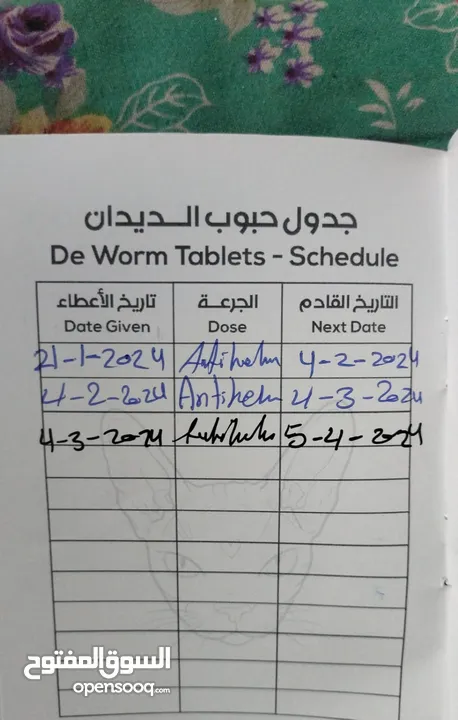 جدول حبوب الديدان
De Worm Tablets - Schedule
تاريخ الأعطاء الجرعة التاريخ القادم
Date Given Dose Next Date
21-1-2024 Antihelm 4-2-2024
4-2-2024 Antihelm 4-3-2024
4-3-2024 5-4-2024
السوق المفتوح
opensooq.com